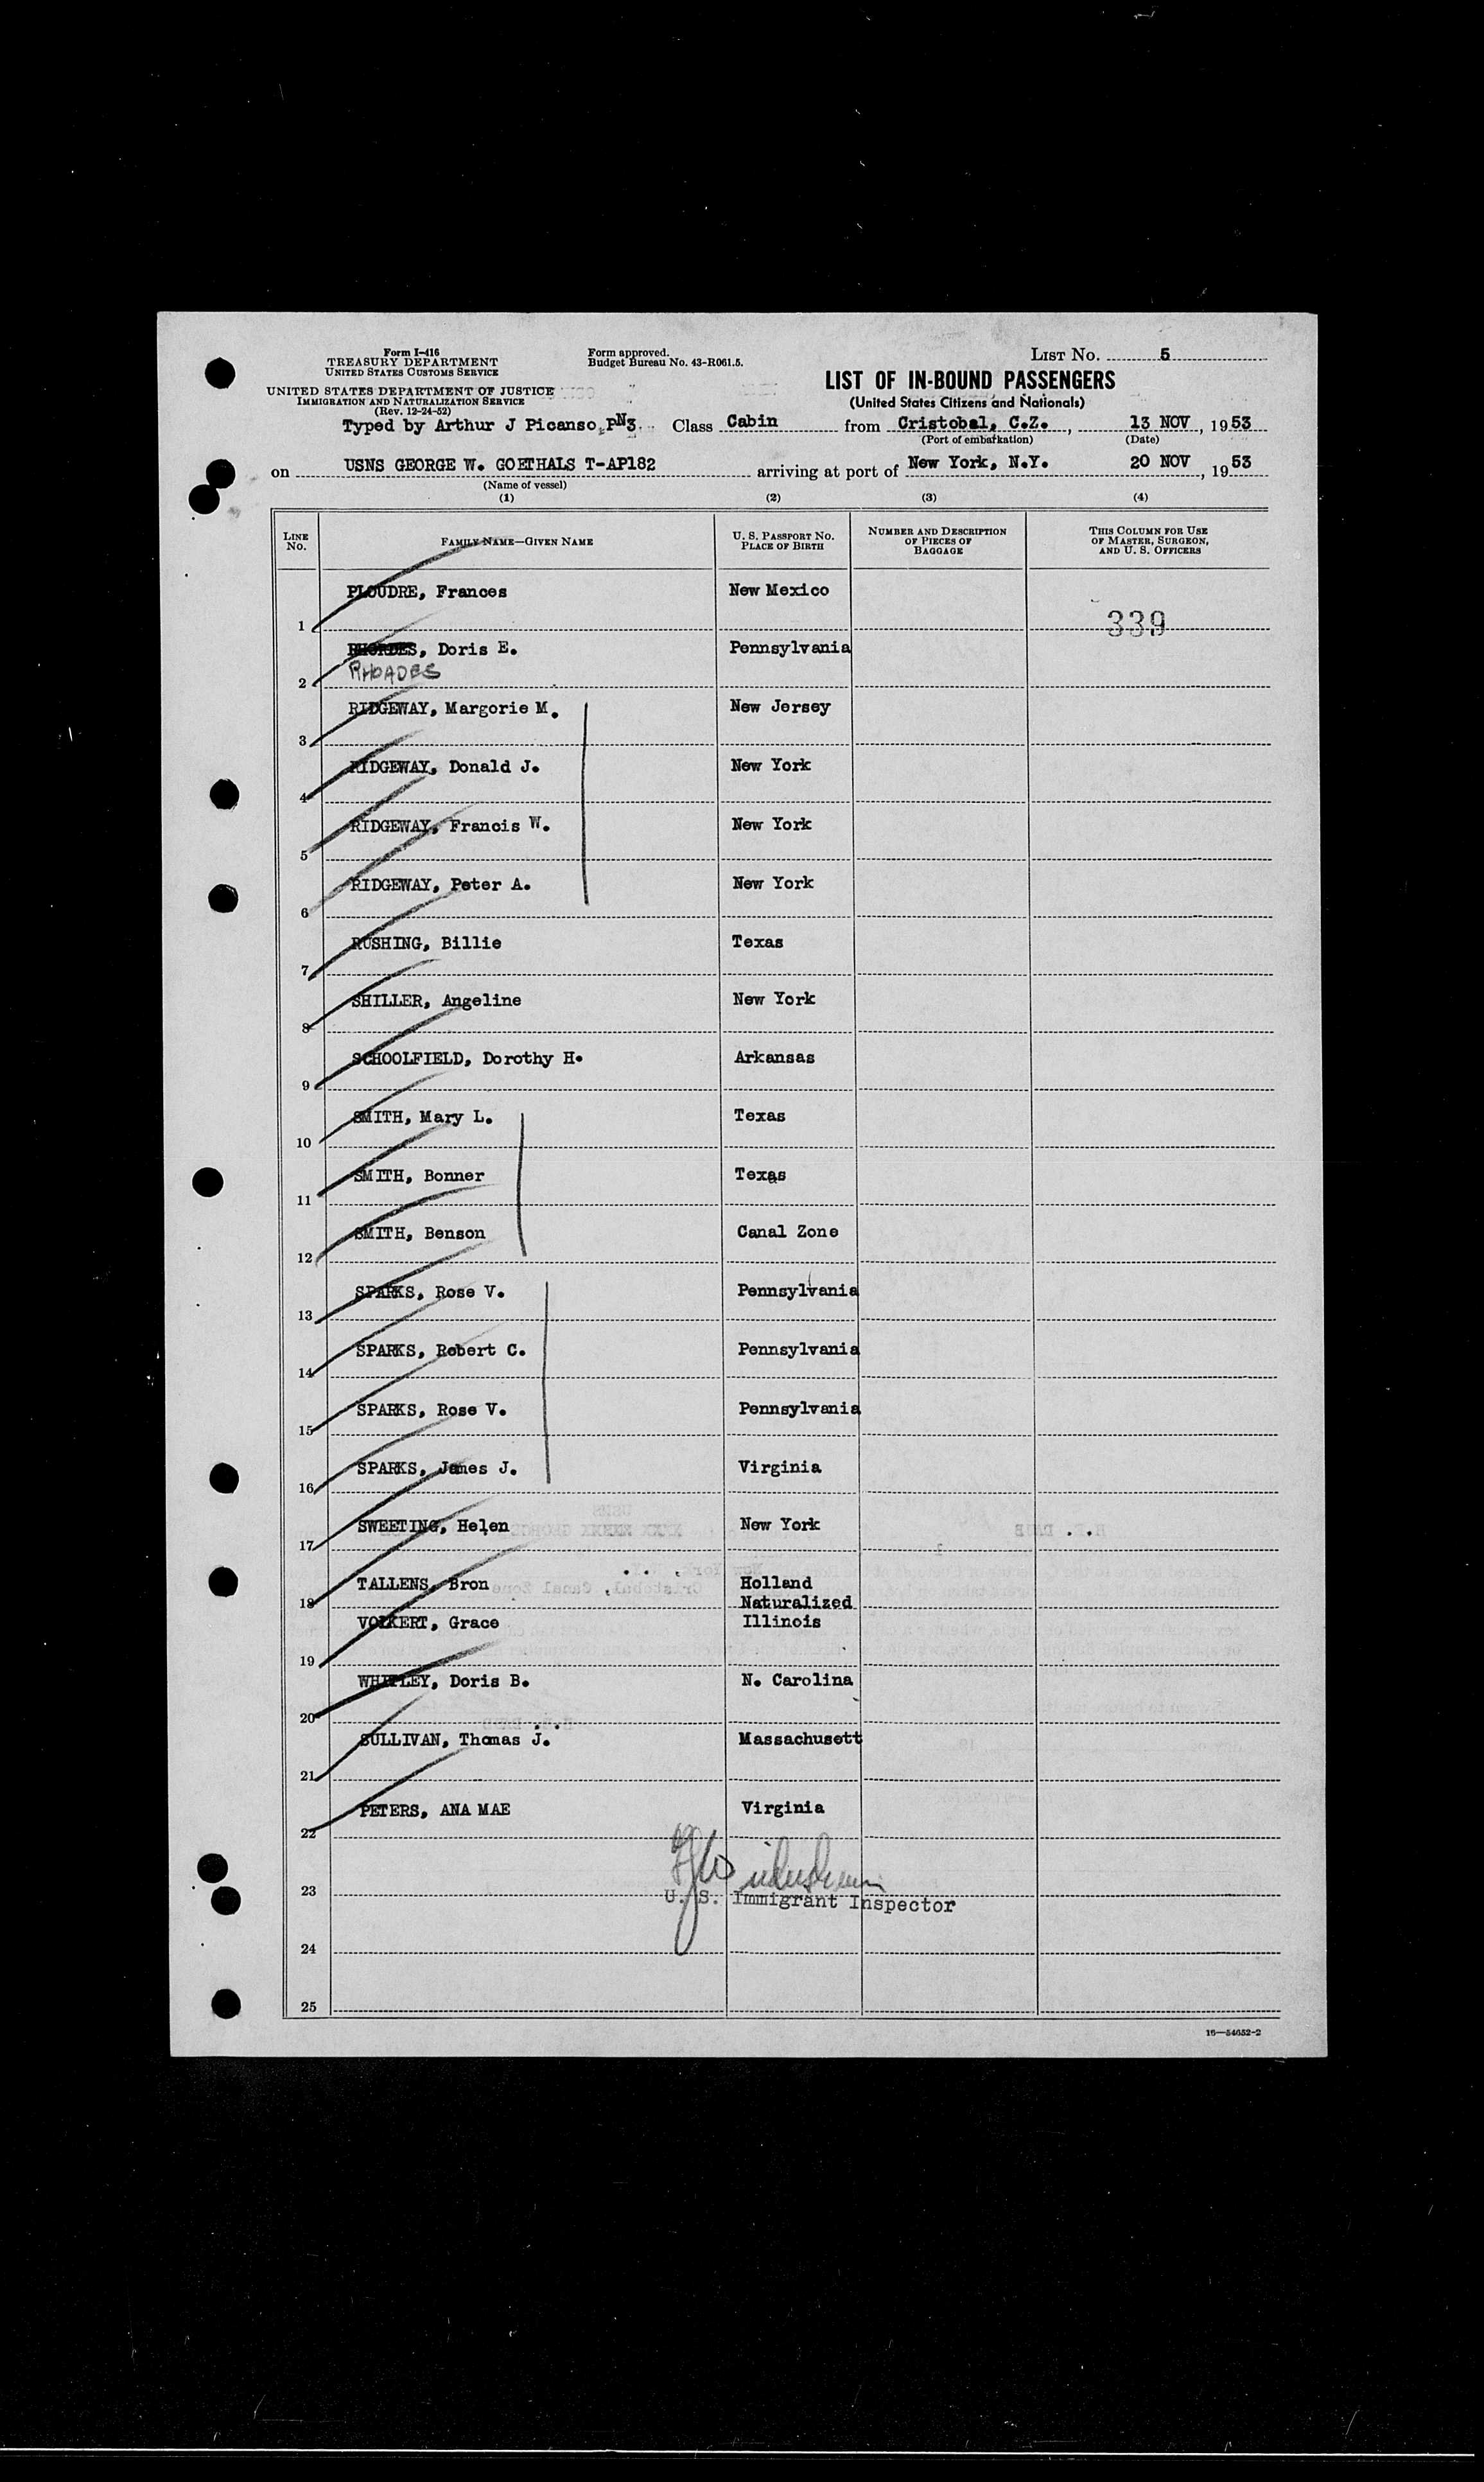 Form I-416
TREASURY DEPARTMENT
UNITED STATES CUSTOMS SERVICE
UNITED STATES DEPARTMENT OF JUSTICE
IMMIGRATION AND NATURALIZATION SERVICE
(Rev. 12-24-52)
Form approved.
Budget Bureau No. 43-R061.5.
LIST NO. 5
LIST OF IN-BOUND PASSENGERS
(United States Citizens and Nationals)
Typed by Arthur J Picanso, PN3. Class Cabin from Cristobal, C.Z., 13 NOV, 1953
(Port of embarkation) (Date)
on USNS GEORGE W. GOETHALS T-AP182 arriving at port of New York, N.Y. 20 NOV, 1953
(Name of vessel)
(1) (2) (3) (4)
LINE NO. FAMILY NAME—GIVEN NAME U. S. PASSPORT NO. PLACE OF BIRTH NUMBER AND DESCRIPTION OF PIECES OF BAGGAGE THIS COLUMN FOR USE OF MASTER, SURGEON, AND U. S. OFFICERS
1 PLOUDRE, Frances New Mexico
339
2 RHORDES, Doris E. Pennsylvania
RHOADES
3 RIDGEWAY, Margorie M. New Jersey
4 RIDGEWAY, Donald J. New York
5 RIDGEWAY, Francis W. New York
6 RIDGEWAY, Peter A. New York
7 RUSHING, Billie Texas
8 SHILLER, Angeline New York
9 SCHOOLFIELD, Dorothy H. Arkansas
10 SMITH, Mary L. Texas
11 SMITH, Bonner Texas
12 SMITH, Benson Canal Zone
13 SPARKS, Rose V. Pennsylvania
14 SPARKS, Robert C. Pennsylvania
15 SPARKS, Rose V. Pennsylvania
16 SPARKS, James J. Virginia
17 SWEETING, Helen New York
18 TALLENS, Bron Holland
Naturalized
19 VOLKERT, Grace Illinois
20 WHITLEY, Doris B. N. Carolina
21 SULLIVAN, Thomas J. Massachusett
22 PETERS, ANA MAE Virginia
23 U. S. Immigrant Inspector
24
25
16—54652-2